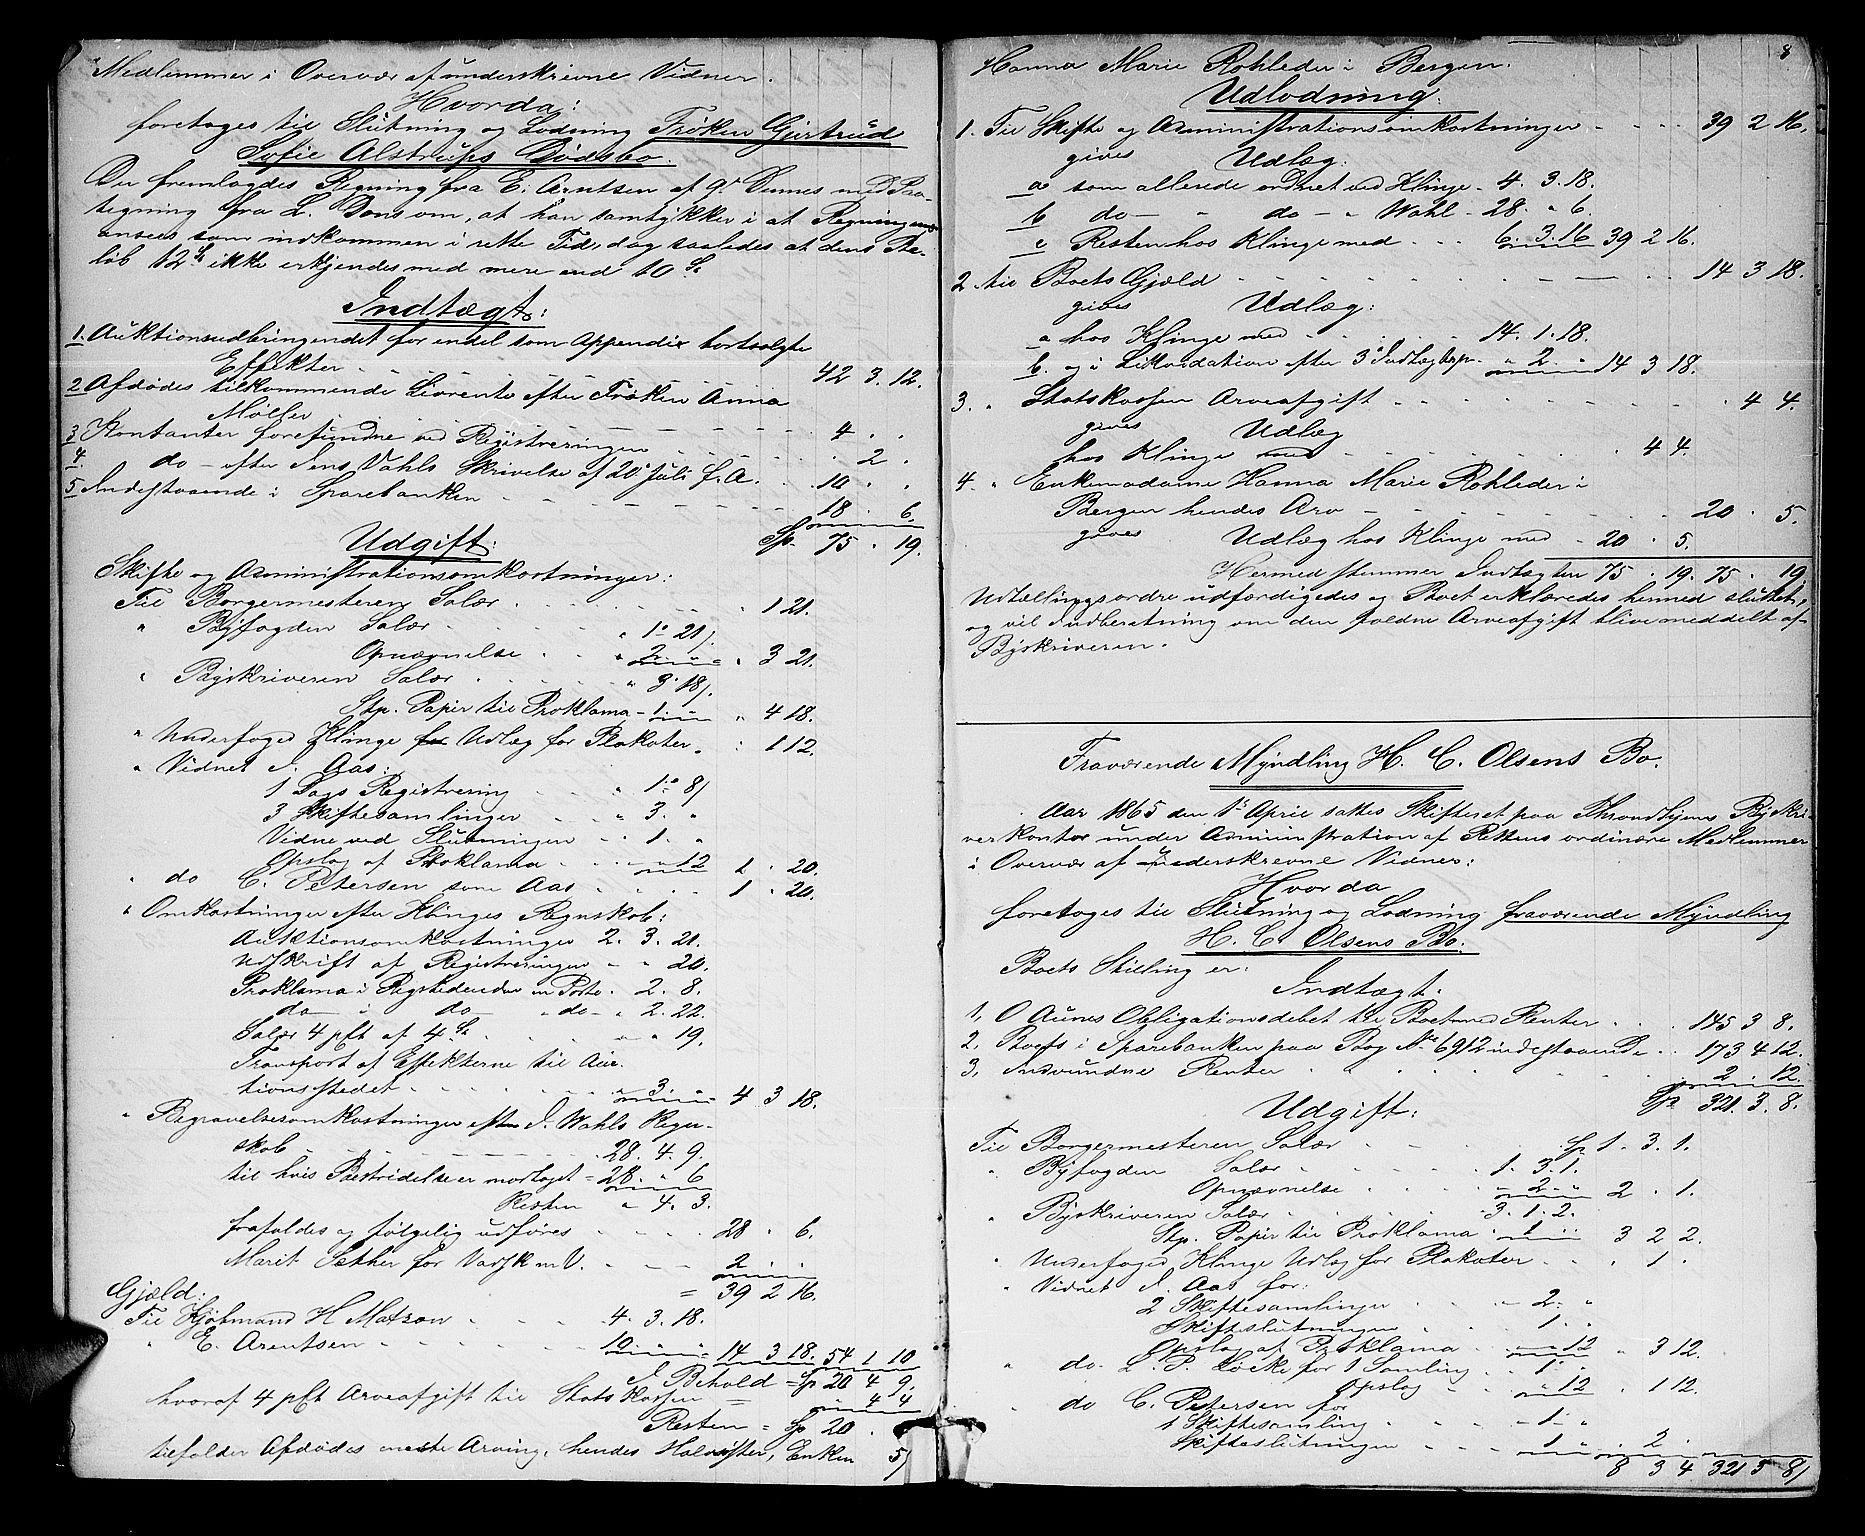 Medlemmer i Overvær af underskrevne Vidner.
Hvorda:
foretoges til Slutning og Lodning Frøken Gjertrud
Sofie Alstrups Dødsbo.
Der fremlagdes Regning fra E. Arntsen af med Paa-
tegning fra L. om, at han samtykker i at Regningen
ansees som indkommen i rette Tid, dog saaledes at dens Be-
løb 12 ikke erkjendes med mere end 10
Indtægt:
1. Auktionsudbringendet for endel som Appendix bortsolgte
Effekter 42 3. 12.
2 Afdødes tilkommende Livrente efter Frøken Anna
Møller 4 . .
3 Kontanter forefundne ved Registreringen . 2 .
4. do — efter Jens Wahls Skrivelse af 20 Juli f. A. 10 . .
5 Indestaaende i Sparebanken 18 . 6.
Sp. 75 . 19.
Udgift:
Skifte og Administrationsomkostninger:
Til Borgermesteren Salær 1 21.
" Byfogden Salær 1 21/.
Opnævnelse 2. 3 21.
" Byskriveren Salær 3. 18/.
Stp. Papir til Proklama - 1. 4 18.
" Underfoged Klinge for Udlæg for Plakater 1 12.
" Vidnet J. Aas:
1 Dags Registrering 1. 8/
3 Skiftesamlinger 3. "
Vidne ved Slutningen 1. "
Opslag af Proklama 12 1 . 20.
" do C. Petersen som Aas 1 . 20.
" Omkostninger efter Klinges Regnskab:
Auktionsomkostninger 2. 3. 21.
Udskrift af Registreringen " " 20.
Proklama i m Porto. 2. 8.
do — i do — " do — " 2. 22.
Salær 4 pCt af 4 " " 19.
Transport af Effekterne til Auk-
tionsstedet " 3. " 4 3 18.
" Begravelsesomkostninger efter J. Wahls Regn-
skab 28. 4. 9.
til hvis Bestridelse er modtaget = 28. " 6
Resten " 4. 3.
frafaldes og følgelig udføres 28 . 6.
Marit Sæther for Vadsk m V. 2 . .
= 39 2 16.
Gjæld:
Til Kjøbmand H Matzow 4. 3. 18.
" E. Arentsen 10 14 3 18. 54 1 10
I Behold = Sp 20 4 9.
hvoraf 4 pCt Arveafgift til Statskassen = 4 4
Resten = Sp 20 .
tilfalder Afdødes eneste Arving, hendes Halvsøster, Enken 5/
8
Hanna Marie Rohleder i Bergen.
Udlodning:
1. Til Skifte og Administrationsomkostninger 39 2 16.
gives Udlæg:
a som allerede ordnet ved Klinge - 4. 3. 18.
b do — " do — " Wahl - 28. " 6.
c Resten hos Klinge med 6. 3. 16 39 2 16.
2 til Boets Gjæld 14 3 18.
gives Udlæg:
a hos Klinge med 14. 1. 18.
b. og i Likvidation efter 3 Indtægtsp. " 2. " 14 3 18.
3. " Statskassen Arveafgift 4 4.
gives Udlæg
hos Klinge med 4 4.
4. " Enkemadame Hanna Marie Rohleder i
Bergen hendes Arv 20 . 5.
gives Udlæg hos Klinge med - 20 . 5.
Hermed stemmer Indtægten 75 . 19. 75 . 19
Udtællingsordre udfærdigedes og Boet erklæredes hermed sluttet,
og vil Indberetning om den faldne Arveafgift blive meddelt af
Byskriveren.
Fraværende Myndling H. C. Olsens Bo.
Aar 1865 den 1 April sattes Skifteret paa Throndhjems Byskri-
verkontor under Administration af Rettens ordinære Medlemmer
i Overvær af underskrevne Vidner:
Hvorda
foretoges til Slutning og Lodning fraværende Myndling
H. C. Olsens Bo.
Boets Stilling er:
Indtægt.
1, O Aunes Obligationsdebet til Boet med Renter 145 3 8.
2. Boets i Sparebanken paa Bog No 6912 indestaaende 173 4 12.
3. Indvundne Renter 2 . 12.
Sp. 321. 3. 8.
Udgift:
Til Borgermesteren Salær Sp 1. 3. 1.
" Byfogden Salær 1. 3. 1.
Opnævnelse " 2. " 2 . 1.
" Byskriveren Salær 3. 1. 2.
Stp. Papir til Proklama 1 3 2 2.
" Underfoged Klinge Udlæg for Plakater 1 .
" Vidnet J. Aas for:
2 Skiftesamlinger 2. "
Skifteslutningen 1. "
Opslag af Proklama 12 . 3 12.
" do. L. P. Løcke for 1 Samling 1 "
Opslag 12 . 1 12.
" do C. Petersen for
1 Skiftesamling 1. "
Skifteslutningen 1 " 2 .
8 3 4 321 3 8/